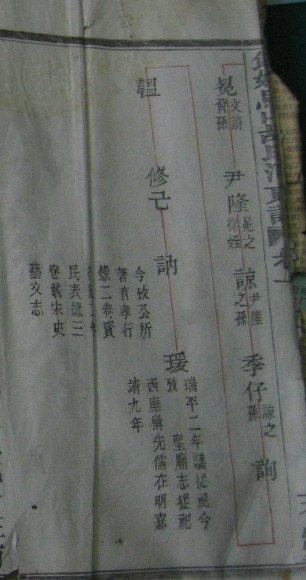 胡氏
卷一
晃 文蔚曾孫 尹隆 晃之從姪 諒 尹隆之孫 季仔 諒之 詢
韞 修己 訥 瑗
今攷公所
著有孝行
錄二卷賢
民表錄三
卷載宋史
藝文志
瑞平二年議從祀今
攷 聖廟志從祀
西廡稱先儒在明嘉
靖九年